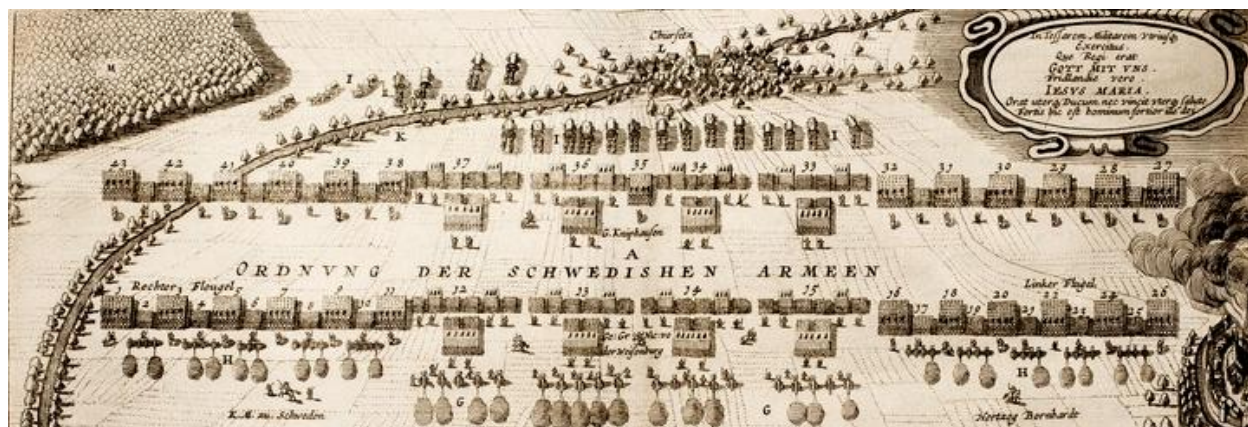 In Tesseram Militarem Vtriusq;
Exercitus.
Que Regi erat
GOTT MIT VNS.
Fridlandie vero
IESVS MARIA.
Orat uterq; Ducum nec vincit
Fortis hic est hominum fortior ille
Chursitz
L
M
I
L
K
I
I
43 42 41 40 39 38 37 36 35 34 33 32 31 30 29 28 27
G. Kniphausen
A
ORDNVNG DER SCHWEDISHEN ARMEEN
Rechter Fleugel
Linker Flugel
1 2 3 4 5 6 7 8 9 10 11 12 13 14 15 16 17 18 19 20 21 22 23 24 25 26
der Wesenburg
H
H
G
G
K. M. zu. Schweden
Hertzog Bernhardt